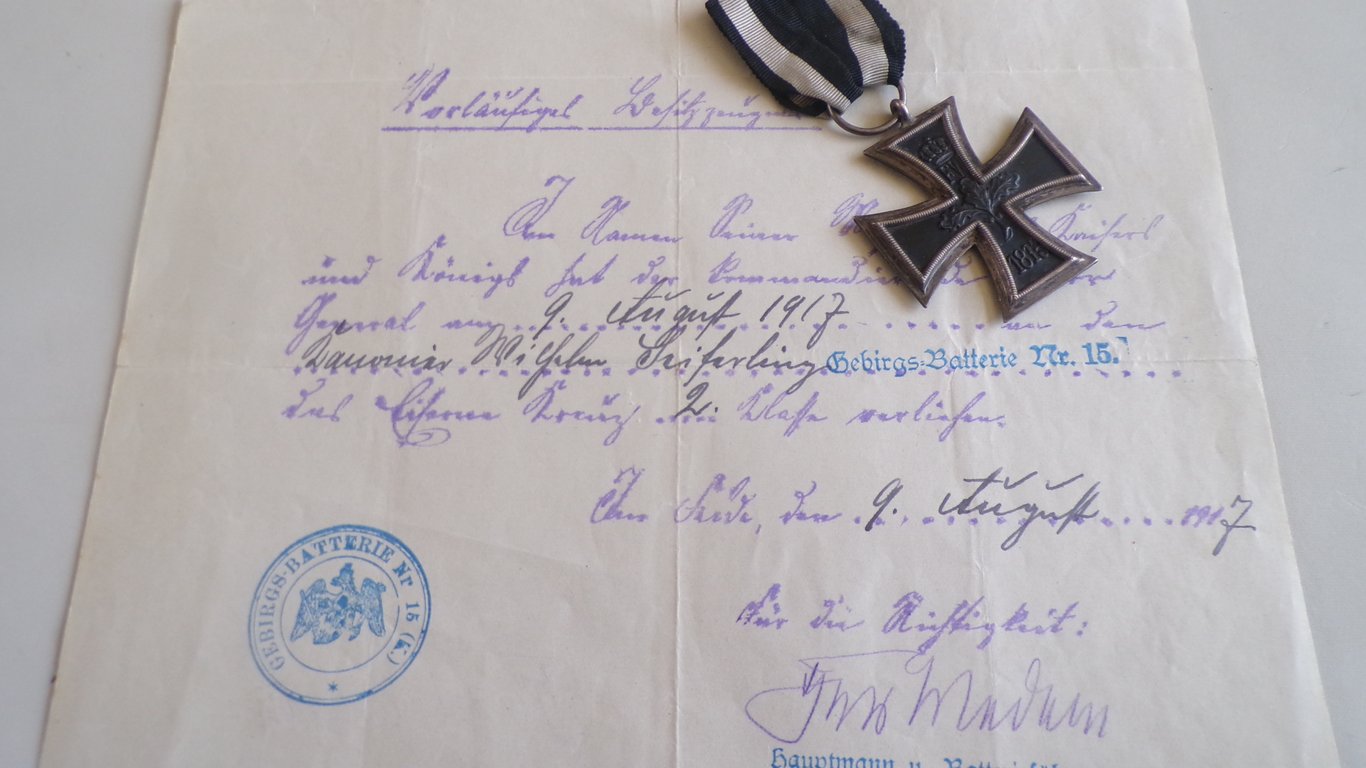 Vorläufiges Besitzzeugn
Im Namen Seiner Kaisers
und Königs hat der kommandierende
General am 9. August 1917 an den
Kanonier Wilhelm Seiferling Gebirgs-Batterie Nr. 15.
das Eiserne Kreuz 2. Klasse verliehen.
Im Felde, den 9. August 1917
Für die Richtigkeit:
GEBIRGS-BATTERIE Nr 15 (K.)
Hauptmann u.
W
1814